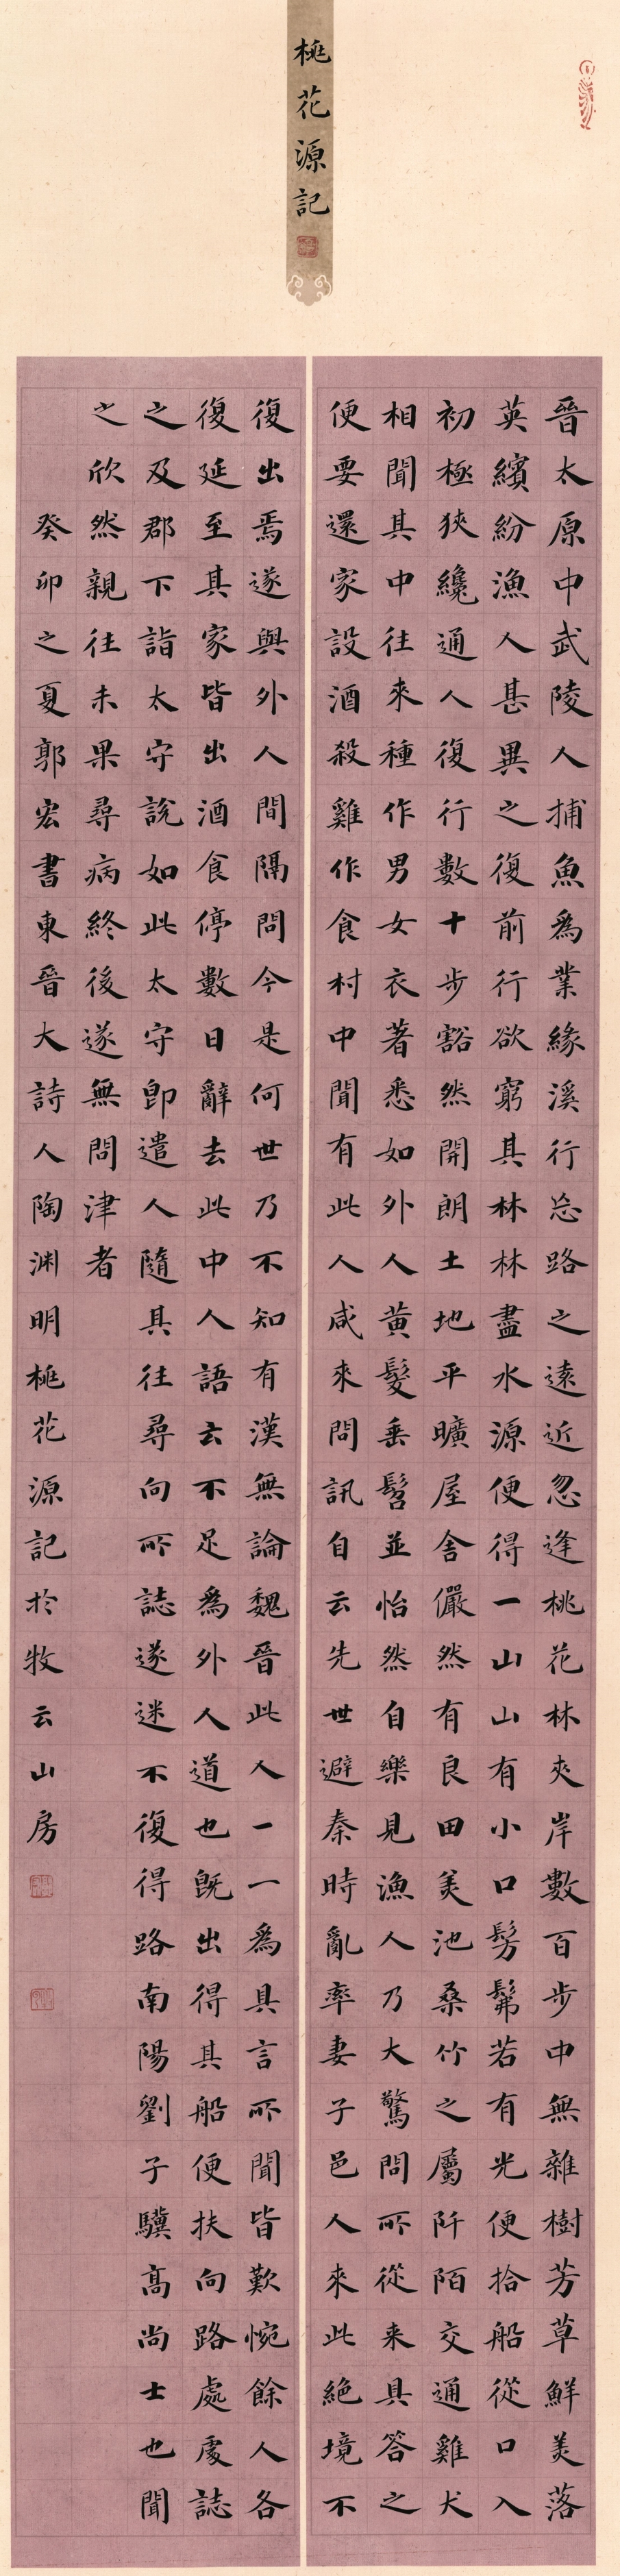 桃花源記
晉太原中武陵人捕魚為業緣溪行忘路之遠近忽逢桃花林夾岸數百步中無雜樹芳草鮮美落
英繽紛漁人甚異之復前行欲窮其林林盡水源便得一山山有小口髣髴若有光便拾船從口入
初極狹纔通人復行數十步豁然開朗土地平曠屋舍儼然有良田美池桑竹之屬阡陌交通雞犬
相聞其中往來種作男女衣著悉如外人黃髮垂髫並怡然自樂見漁人乃大驚問所從来具答之
便要還家設酒殺雞作食村中聞有此人咸來問訊自云先世避秦時亂率妻子邑人來此絕境不
復出焉遂與外人間隔問今是何世乃不知有漢無論魏晉此人一一為具言所聞皆歎惋餘人各
復延至其家皆出酒食停數日辭去此中人語云不足為外人道也既出得其船便扶向路處處誌
之及郡下詣太守說如此太守即遣人隨其往尋向所誌遂迷不復得路南陽劉子驥高尚士也聞
之欣然親往未果尋病終後遂無問津者
癸卯之夏郭宏書東晉大詩人陶渊明桃花源記於牧云山房